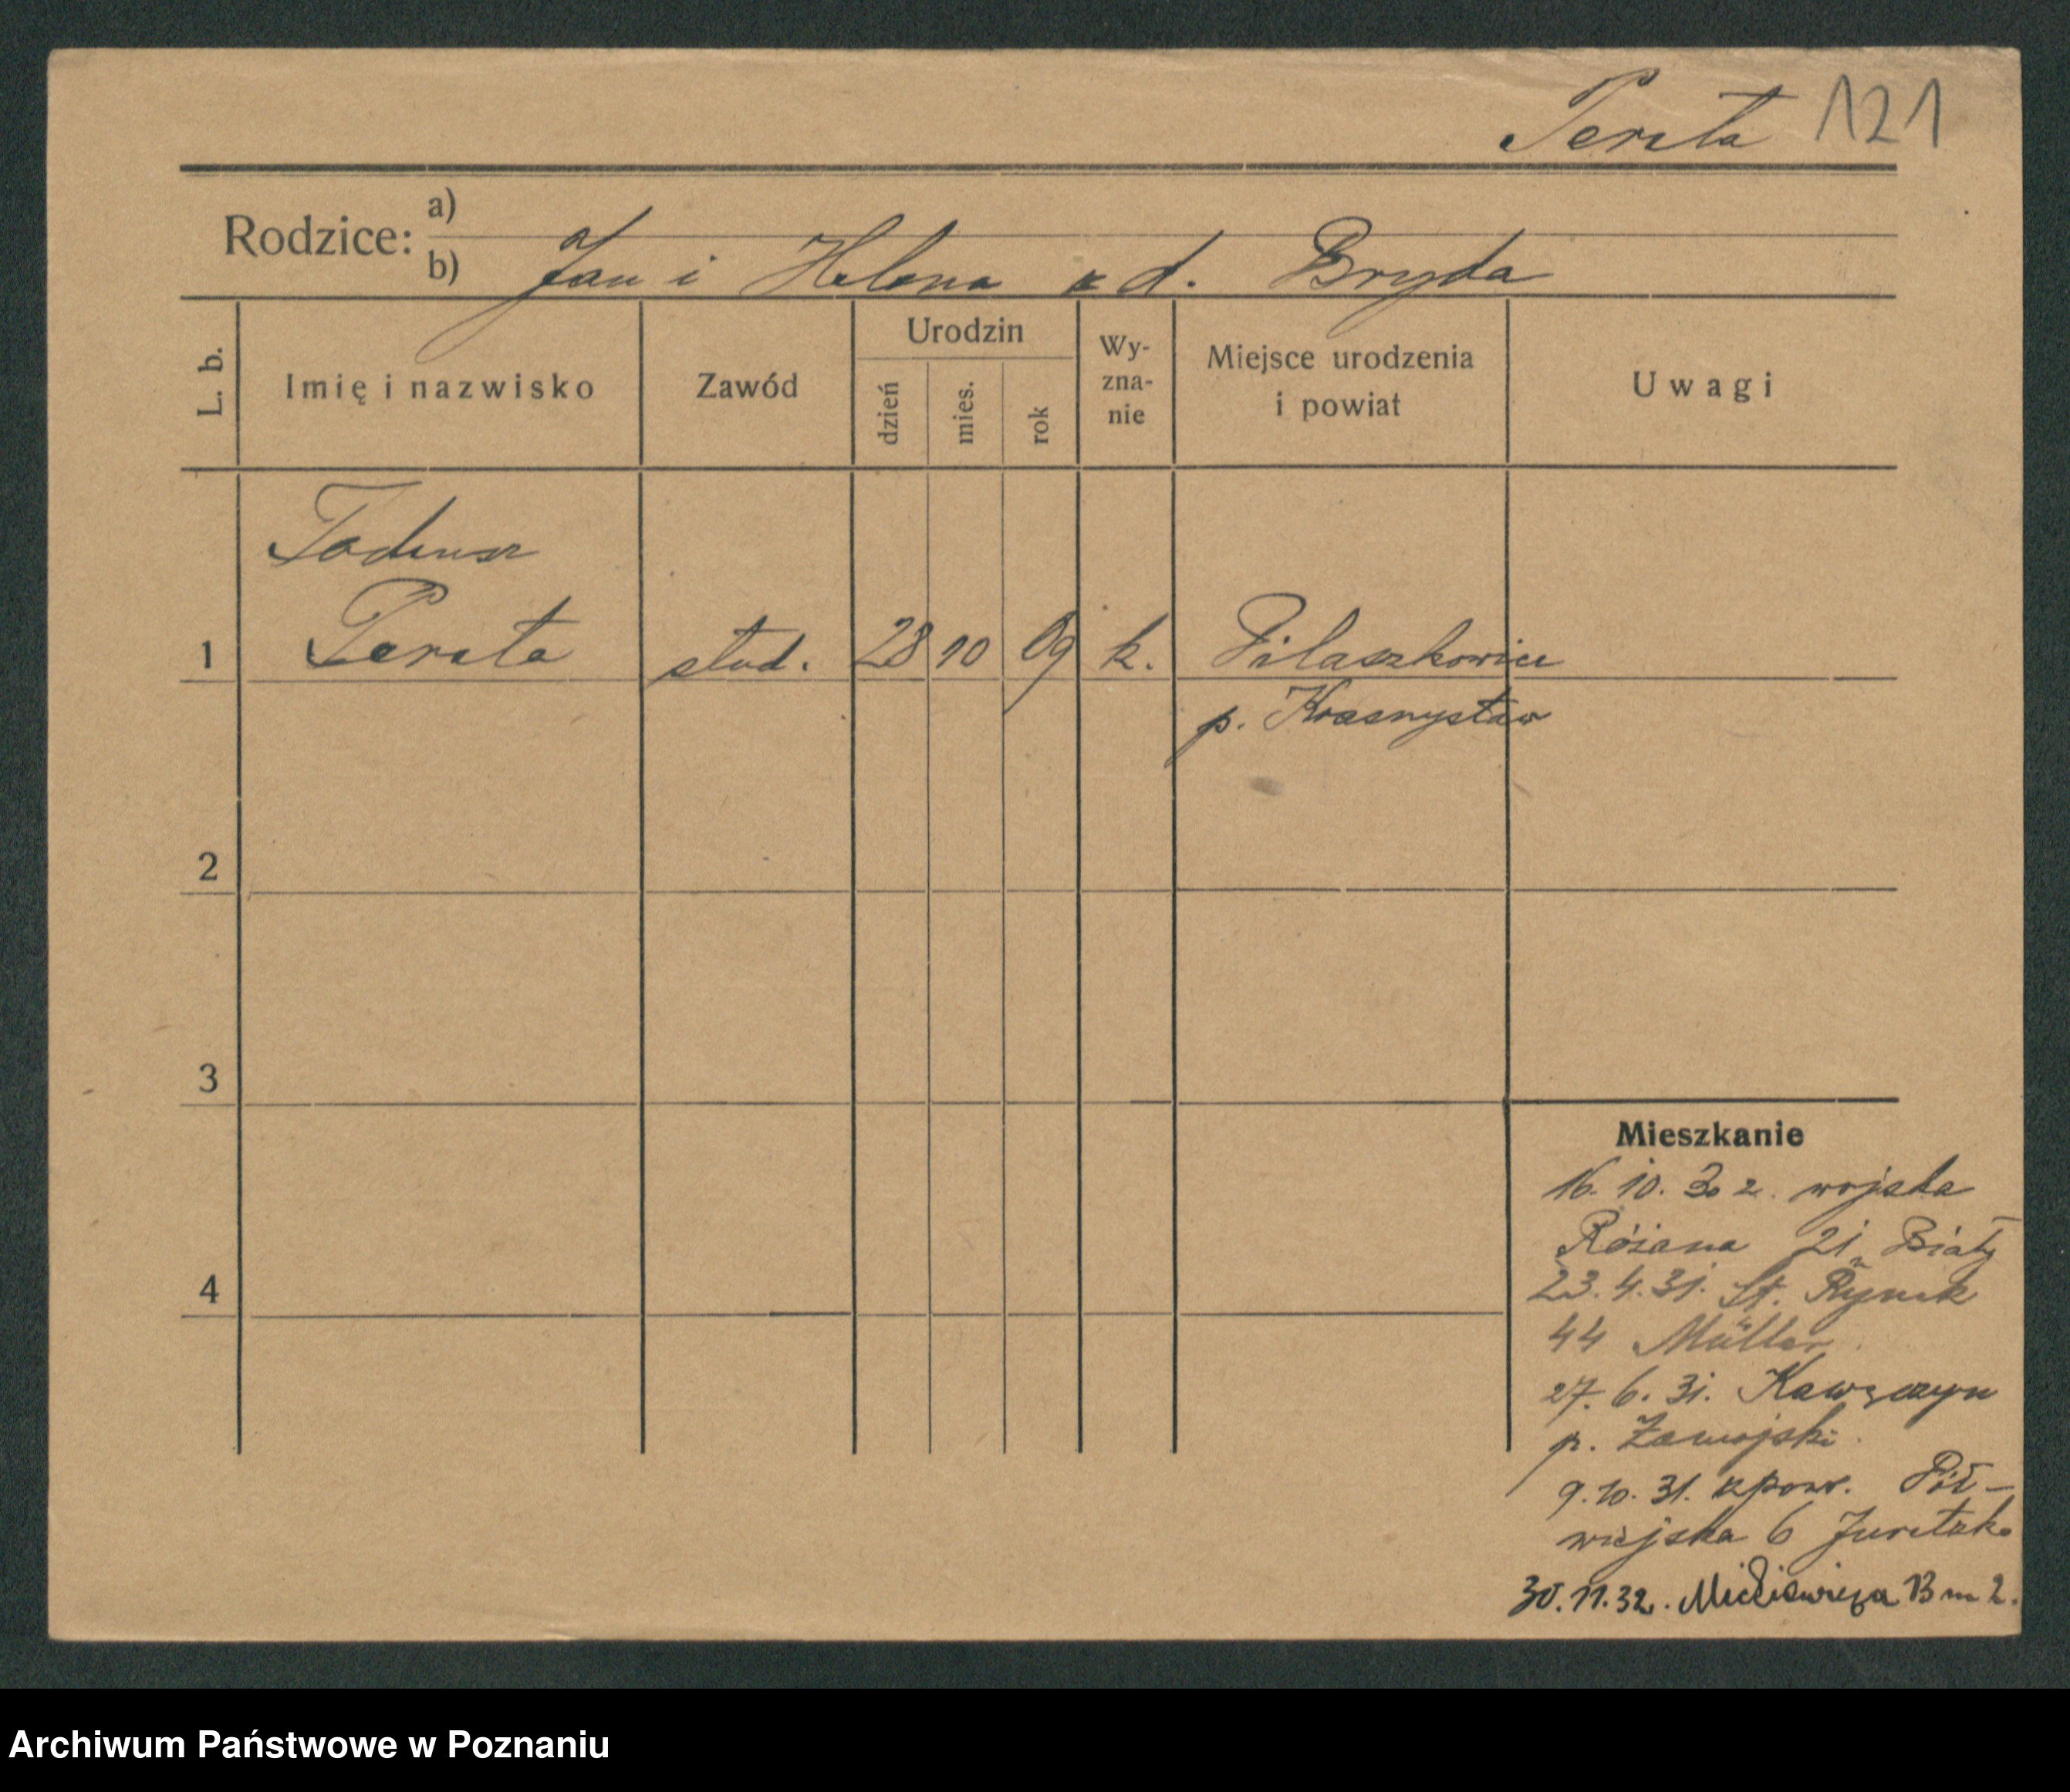 Pereta 121
Rodzice: a)
b) Jan i Helena z d. Bryda
L. b.
Imię i nazwisko
Zawód
Urodzin
dzień
mies.
rok
Wy-
zna-
nie
Miejsce urodzenia
i powiat
Uwagi
Tadeusz
1 Pereta stud. 28 10 09 k. Pilaszkowice
p. Krasnystaw
2
3
4
Mieszkanie
16. 10. 30 z. wojska
Różana 21 Biały
23.4.31. St. Rynek
44 Müller.
27. 6. 31.
p. Zamojski.
9.10.31. z pow. Pół-
wiejska 6
30.11.32. Mickiewicza 13 m 2.
Archiwum Państwowe w Poznaniu